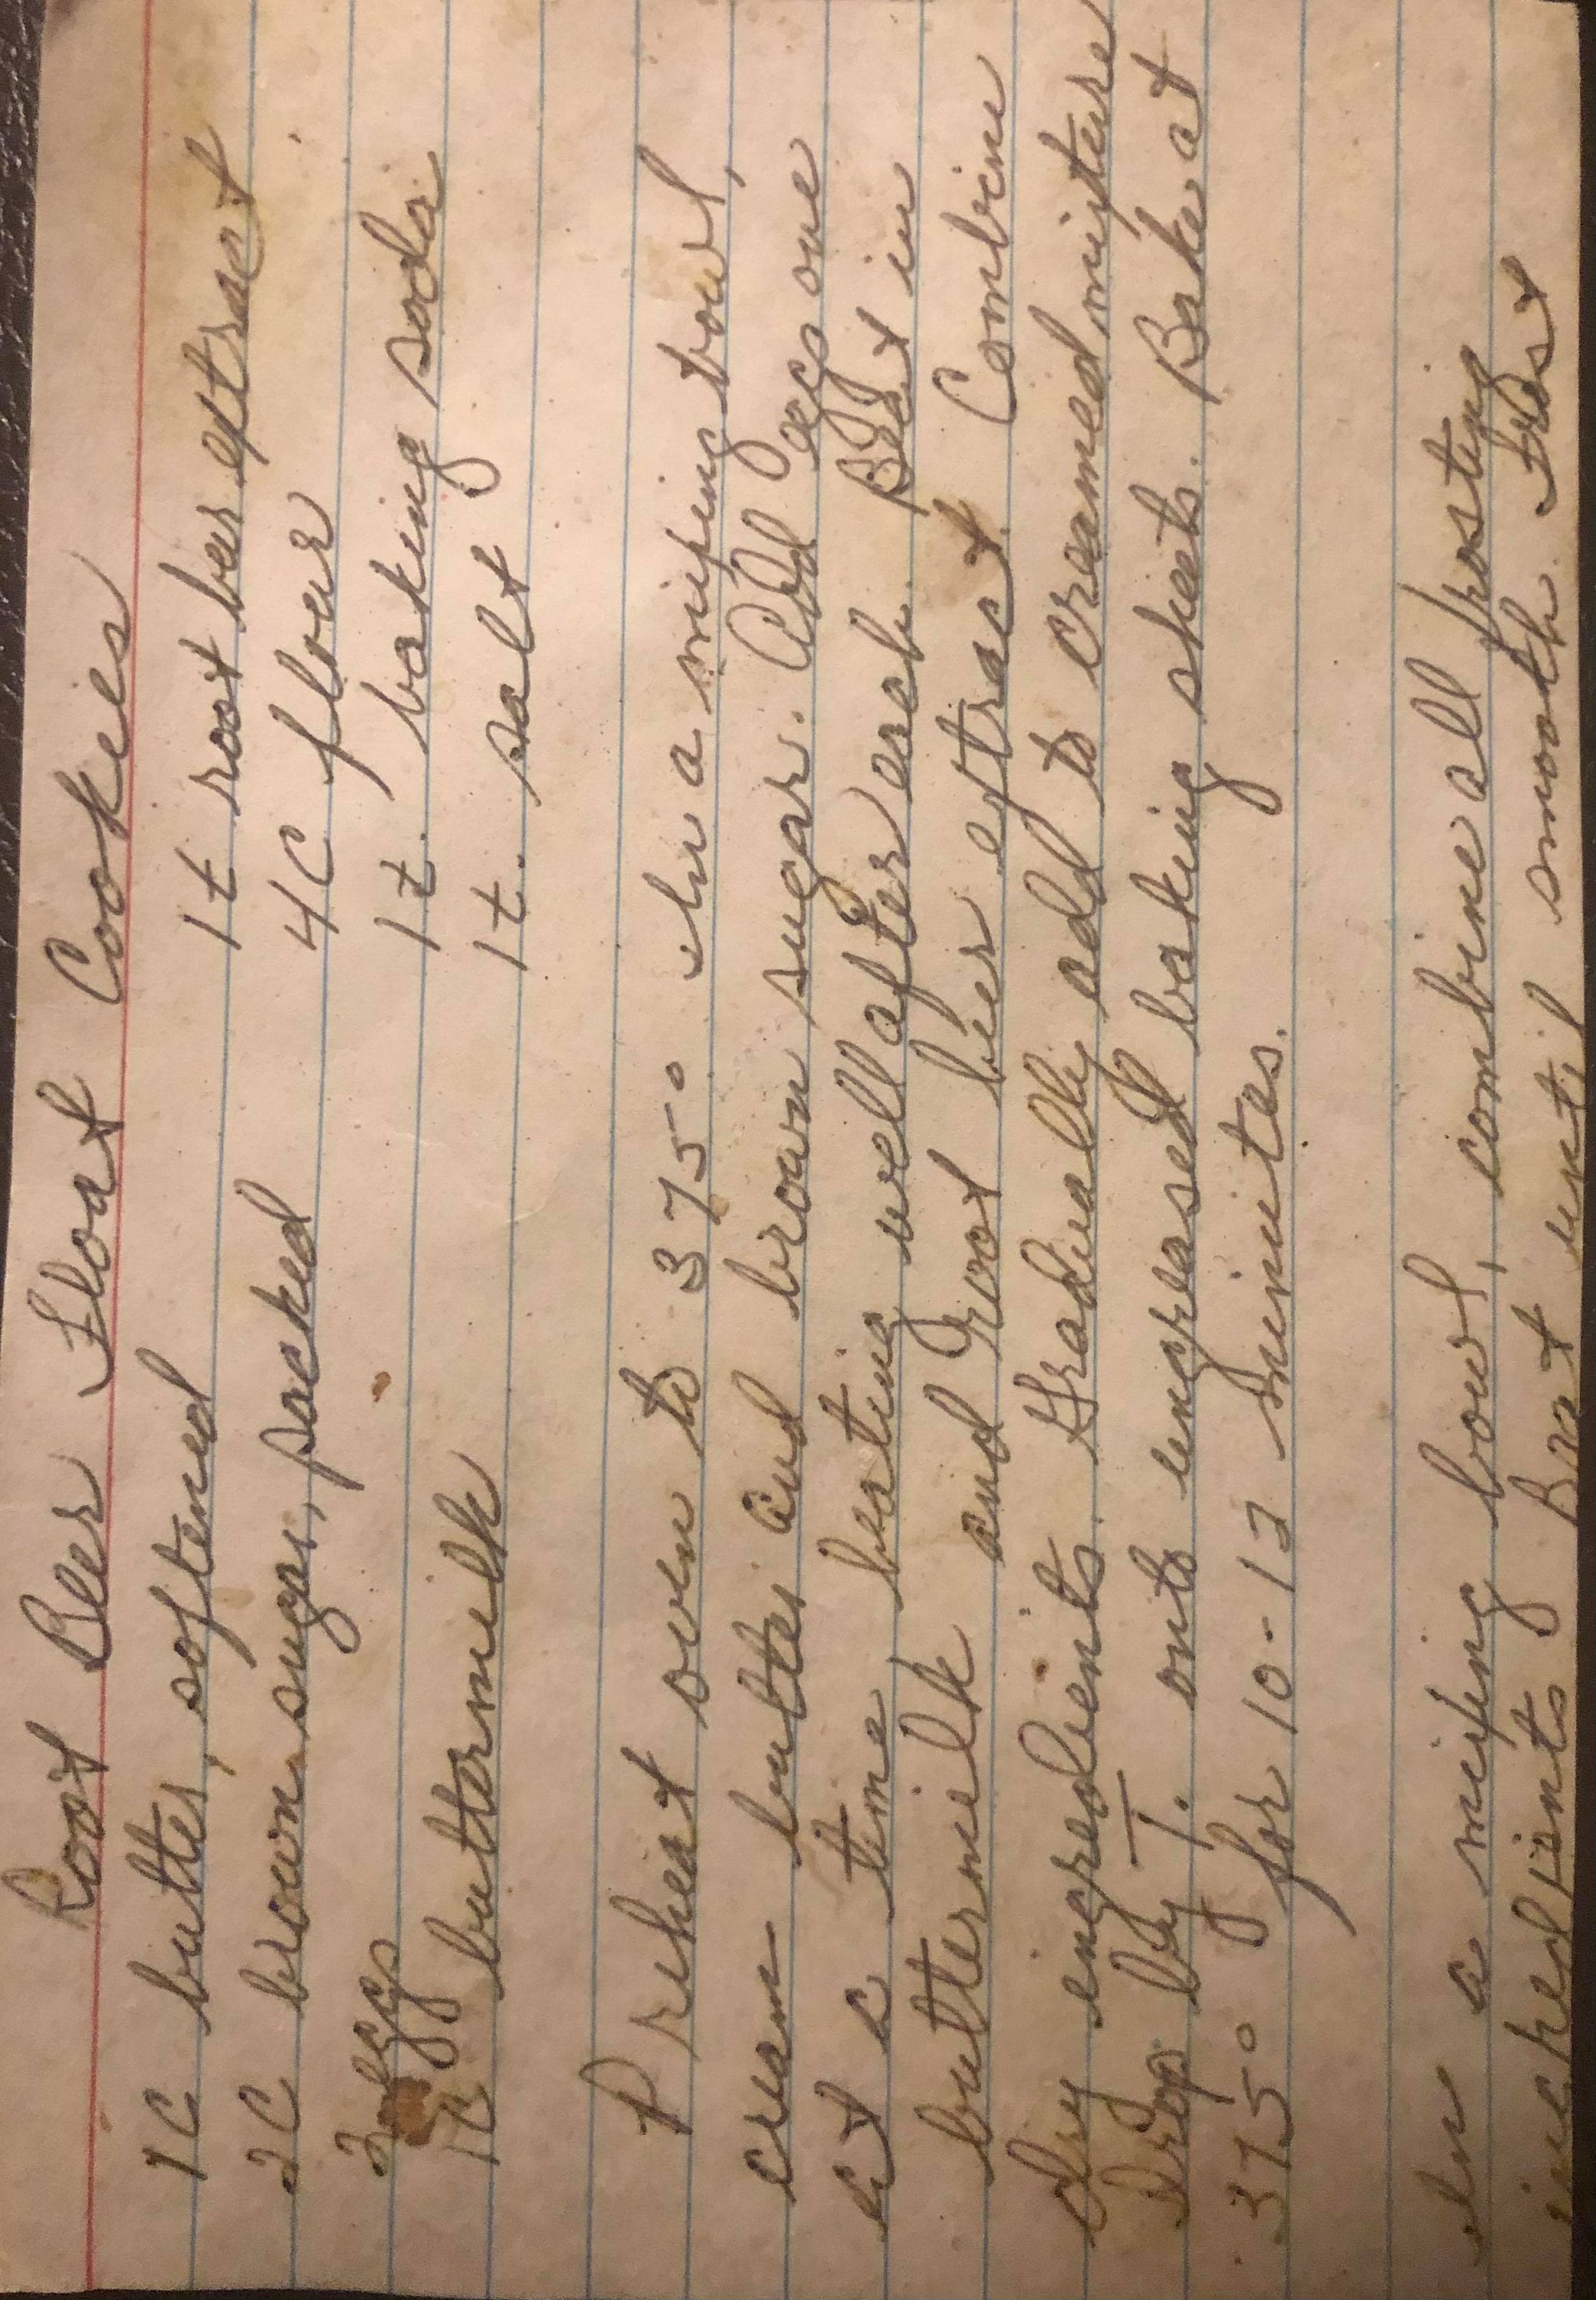 Root Beer Float Cookies
1C butter, softened 1t root beer extract
2C brown sugar, packed 4C flour
2 eggs 1t. baking soda
1C buttermilk 1t. salt
Preheat oven to 375° In a mixing bowl,
cream butter and brown sugar. Add eggs one
at a time beating well after each. Beat in
buttermilk and root beer extract. Combine
dry ingredients. Gradually add to creamed mixture
Drop by T. onto ungreased baking sheets. Bake at
375° for 10-12 minutes.
In a mixing bowl, combine all frosting
ingredients Beat until smooth. Frost